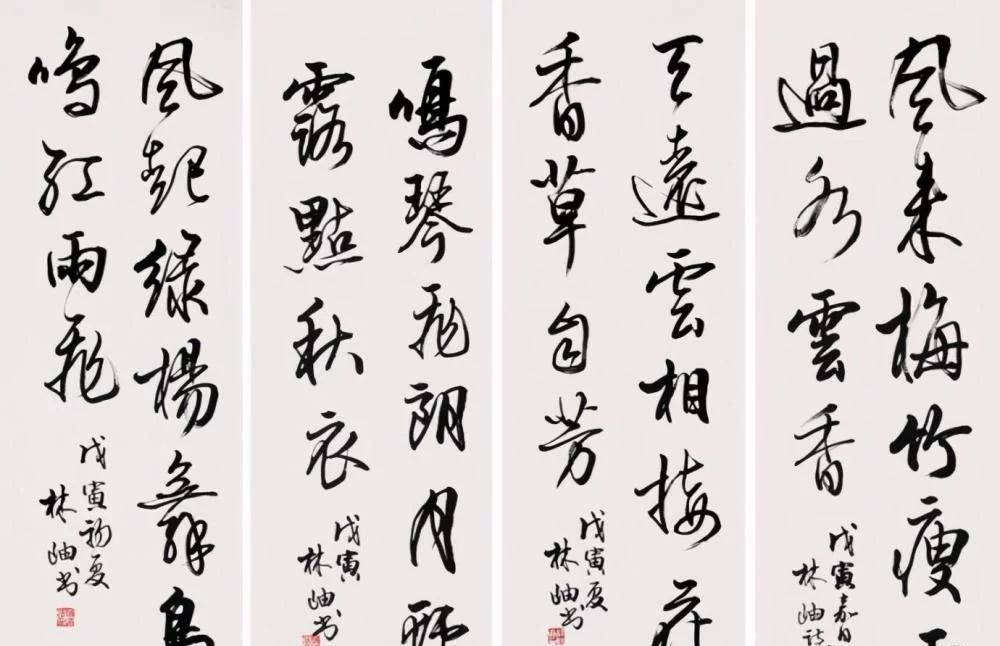 風来梅竹瘦
過水雲香
戊寅嘉日
林岫詩
天遠雲相接
香草自芳
戊寅夏
林岫书
鳴琴飛朗月
露點秋衣
戊寅
林岫书
風起緑楊舞鳥
鳴紅雨飛
戊寅初夏
林岫书